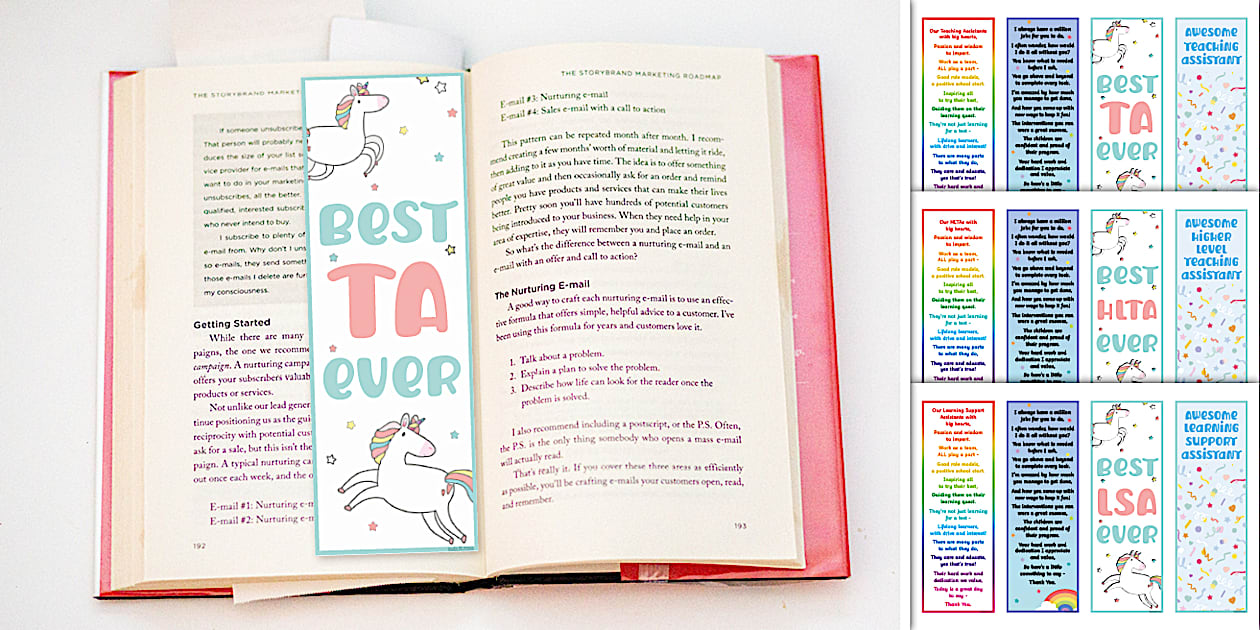 THE STORYBRAND MARKET
If someone unsubscribe
That person will probably ne
duces the size of your list s
vice provider for e-mails tha
want to do in your marketin
unsubscribes, all the better.
qualified, interested subscri
who never intend to buy.
I subscribe to plenty of
e-mail from. Why don't I uns
so e-mails, they send somet
those e-mails I delete are fur
my consciousness.
Getting Started
While there are many
paigns, the one we recomme
campaign. A nurturing campa
offers your subscribers valuab
products or services.
Not unlike our lead gener
tinue positioning us as the gui
reciprocity with potential cust
ask for a sale, but this isn't the
paign. A typical nurturing ca
out once each week, and the o
E-mail #1: Nurturing e-m
E-mail #2: Nurturing e-m
192
BEST
TA
EVER
THE STORYBRAND MARKETING ROADMAP
E-mail #3: Nurturing e-mail
E-mail #4: Sales e-mail with a call to action
This pattern can be repeated month after month. I recom-
mend creating a few months' worth of material and letting it ride,
then adding to it as you have time. The idea is to offer something
of great value and then occasionally ask for an order and remind
people you have products and services that can make their lives
better. Pretty soon you'll have hundreds of potential customers
being introduced to your business. When they need help in your
area of expertise, they will remember you and place an order.
So what's the difference between a nurturing e-mail and an
e-mail with an offer and call to action?
The Nurturing E-mail
A good way to craft each nurturing e-mail is to use an effec-
tive formula that offers simple, helpful advice to a customer. I've
been using this formula for years and customers love it.
1. Talk about a problem.
2. Explain a plan to solve the problem.
3. Describe how life can look for the reader once the
problem is solved.
I also recommend including a postscript, or the P.S. Often,
the P.S. is the only thing somebody who opens a mass e-mail
will actually read.
That's really it. If you cover these three areas as efficiently
as possible, you'll be crafting e-mails your customers open, read,
and remember.
193
Our Teaching Assistants
with big hearts,
Passion and wisdom
to impart.
Work as a team,
ALL play a part -
Good role models,
a positive school start.
Inspiring all
to try their best,
Guiding them on their
learning quest.
They're not just learning
for a test -
Lifelong learners,
with drive and interest!
There are many parts
to what they do,
They care and educate,
yes that's true!
Their hard work and
I always have a million
jobs for you to do,
I often wonder, how would
I do it all without you?
You know what is needed
before I ask,
You go above and beyond
to complete every task.
I'm amazed by how much
you manage to get done,
And how you come up with
new ways to keep it fun!
The interventions you run
were a great success,
The children are
confident and proud of
their progress.
Your hard work and
dedication I appreciate
and value,
So here's a little
BEST
TA
EVER
AWESOME
TEACHING
ASSISTANT
Our HLTAs with
big hearts,
Passion and wisdom
to impart.
Work as a team,
ALL play a part -
Good role models,
a positive school start.
Inspiring all
to try their best,
Guiding them on their
learning quest.
They're not just learning
for a test -
Lifelong learners,
with drive and interest!
There are many parts
to what they do,
They care and educate,
yes that's true!
Their hard work and
I always have a million
jobs for you to do,
I often wonder, how would
I do it all without you?
You know what is needed
before I ask,
You go above and beyond
to complete every task.
I'm amazed by how much
you manage to get done,
And how you come up with
new ways to keep it fun!
The interventions you run
were a great success,
The children are
confident and proud of
their progress.
Your hard work and
dedication I appreciate
and value,
So here's a little
BEST
HLTA
EVER
AWESOME
HIGHER
LEVEL
TEACHING
ASSISTANT
Our Learning Support
Assistants with
big hearts,
Passion and wisdom
to impart.
Work as a team,
ALL play a part -
Good role models,
a positive school start.
Inspiring all
to try their best,
Guiding them on their
learning quest.
They're not just learning
for a test -
Lifelong learners,
with drive and interest!
There are many parts
to what they do,
They care and educate,
yes that's true!
Their hard work and
dedication we value,
Today is a great day
to say -
Thank You.
I always have a million
jobs for you to do,
I often wonder, how would
I do it all without you?
You know what is needed
before I ask,
You go above and beyond
to complete every task.
I'm amazed by how much
you manage to get done,
And how you come up with
new ways to keep it fun!
The interventions you run
were a great success,
The children are
confident and proud of
their progress.
Your hard work and
dedication I appreciate
and value,
So here's a little
something to say -
Thank You.
BEST
LSA
EVER
AWESOME
LEARNING
SUPPORT
ASSISTANT